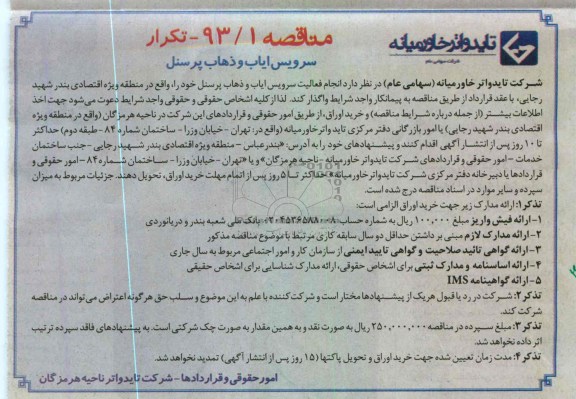 تایدواتر خاورمیانه
شرکت سهامی عام
مناقصه ۹۳/۱ - تکرار
سرویس ایاب و ذهاب پرسنل
شرکت تایدواتر خاورمیانه (سهامی عام) در نظر دارد انجام فعالیت سرویس ایاب و ذهاب پرسنل خود را، واقع در منطقه ویژه اقتصادی بندر شهید
رجایی، با عقد قرارداد از طریق مناقصه به پیمانکار واجد شرایط واگذار کند. لذا از کلیه اشخاص حقیقی و حقوقی واجد شرایط دعوت می‌شود جهت اخذ
اطلاعات بیشتر (از جمله درباره شرایط مناقصه) و خرید اوراق، از طریق امور حقوقی و قراردادهای این شرکت در ناحیه هرمزگان (واقع در منطقه ویژه
اقتصادی بندر شهید رجایی) یا امور بازرگانی دفتر مرکزی تایدواتر خاورمیانه (واقع در: تهران - خیابان وزرا - ساختمان شماره ۸۴ - طبقه دوم) حداکثر
تا ۱۰ روز پس از انتشار آگهی اقدام کنند و پیشنهادهای خود را به آدرس: «بندرعباس - منطقه ویژه اقتصادی بندر شهید رجایی - جنب ساختمان
خدمات - امور حقوقی و قراردادهای شرکت تایدواتر خاورمیانه - ناحیه هرمزگان» و یا «تهران - خیابان وزرا - ساختمان شماره ۸۴ - امور حقوقی و
قراردادها یا دبیرخانه دفتر مرکزی شرکت تایدواتر خاورمیانه» حداکثر تا ۵ روز پس از اتمام مهلت خرید اوراق، تحویل دهند. جزئیات مربوط به میزان
سپرده و سایر موارد در اسناد مناقصه درج شده است.
تذکر۱: ارائه مدارک زیر جهت خرید اوراق الزامی است:
۱- ارائه فیش واریز مبلغ ۱۰۰,۰۰۰ ریال به شماره حساب بانک ملی شعبه بندر و دریانوردی
۲- ارائه مدارک لازم مبنی بر داشتن حداقل دو سال سابقه کاری مرتبط با موضوع مناقصه مذکور
۳- ارائه گواهی تائید صلاحیت و گواهی تایید ایمنی از سازمان کار و امور اجتماعی مربوط به سال جاری
۴- ارائه اساسنامه و مدارک ثبتی برای اشخاص حقوقی، ارائه مدارک شناسایی برای اشخاص حقیقی
۵- ارائه گواهینامه IMS
تذکر۲: شرکت در رد یا قبول هریک از پیشنهادها مختار است و شرکت‌کننده با علم به این موضوع و سلب حق هرگونه اعتراض می‌تواند در مناقصه
شرکت کند.
تذکر۳: مبلغ سپرده در مناقصه ۲۵۰,۰۰۰,۰۰۰ ریال به صورت نقد و به همین مقدار به صورت چک شرکتی است. به پیشنهادهای فاقد سپرده ترتیب
اثر داده نخواهد شد.
تذکر۴: مدت زمان تعیین شده جهت خرید اوراق و تحویل پاکتها (۱۵ روز پس از انتشار آگهی) تمدید نخواهد شد.
امور حقوقی و قراردادها - شرکت تایدواتر ناحیه هرمزگان